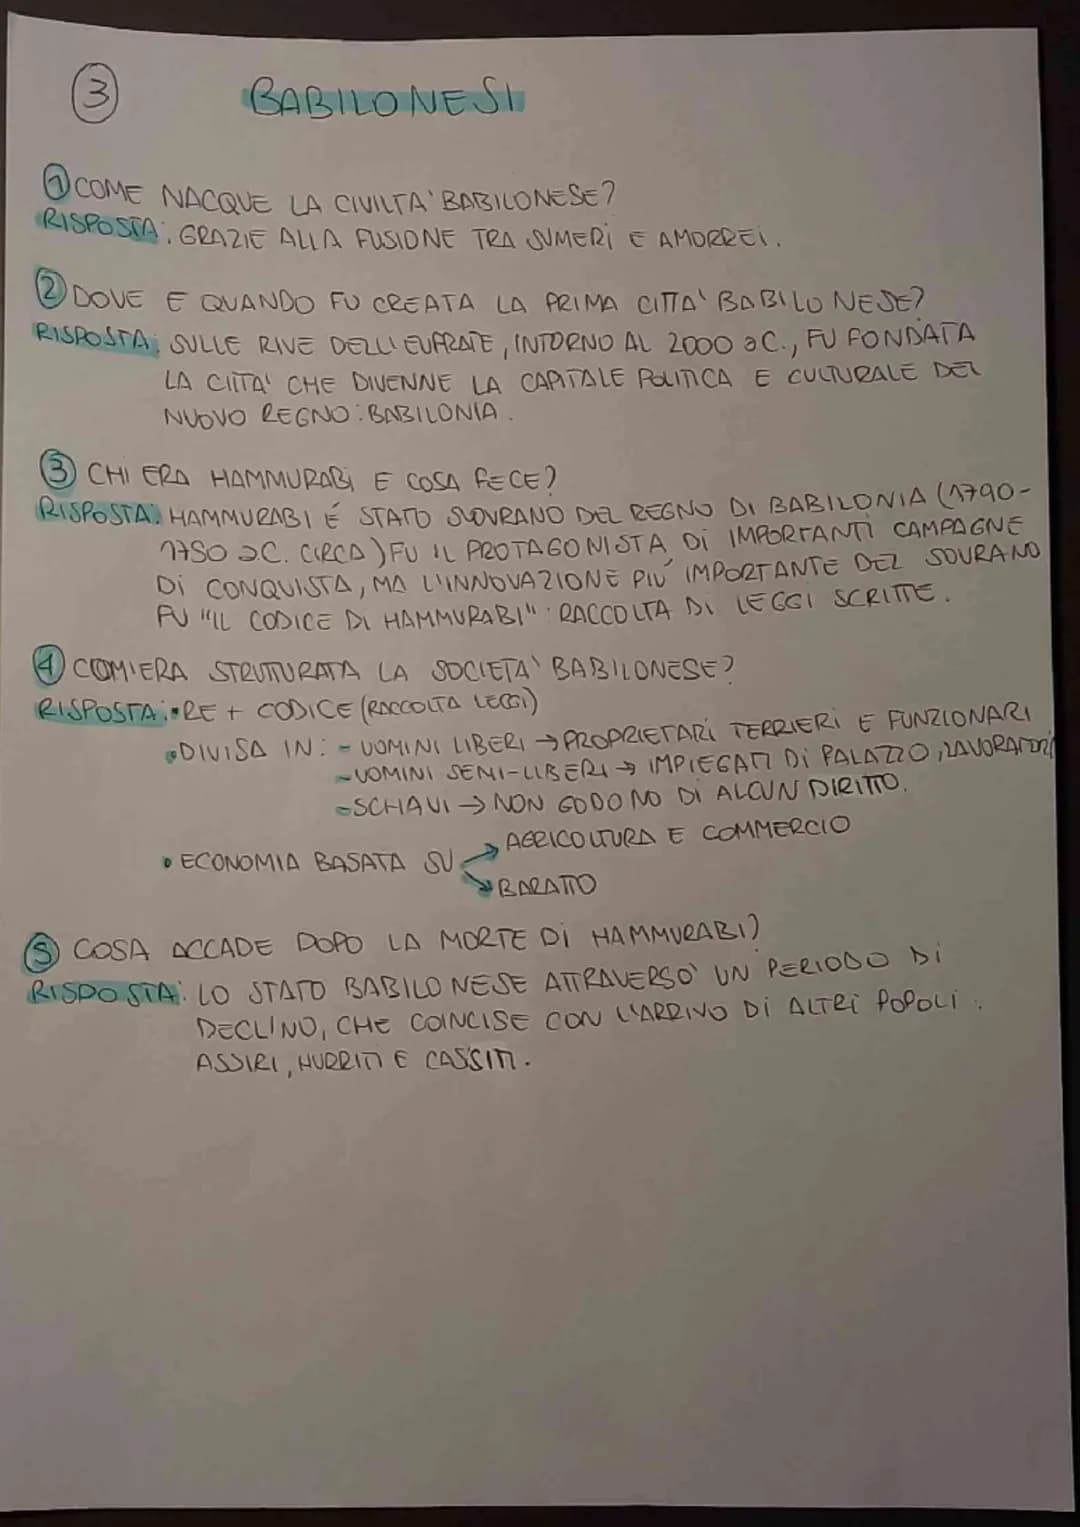 3 BABILONESI
1 COME NACQUE LA CIVILTA' BABILONESE?
RISPOSTA: GRAZIE ALLA FUSIONE TRA SUMERI E AMORREI.
2 DOVE E QUANDO FU CREATA LA PRIMA CITTA' BABILONESE?
RISPOSTA: SULLE RIVE DELL'EUFRATE, INTORNO AL 2000 a.C., FU FONDATA
LA CITTA' CHE DIVENNE LA CAPITALE POLITICA E CULTURALE DEL
NUOVO REGNO: BABILONIA.
3 CHI ERA HAMMURABI E COSA FECE?
RISPOSTA: HAMMURABI É STATO SOVRANO DEL REGNO DI BABILONIA (1790-
1750 a.C. CIRCA) FU IL PROTAGONISTA DI IMPORTANTI CAMPAGNE
DI CONQUISTA, MA L'INNOVAZIONE PIU' IMPORTANTE DEL SOVRANO
FU "IL CODICE DI HAMMURABI": RACCOLTA DI LEGGI SCRITTE.
4 COM'ERA STRUTTURATA LA SOCIETA' BABILONESE?
RISPOSTA: • RE + CODICE (RACCOLTA LEGGI)
• DIVISA IN: - UOMINI LIBERI → PROPRIETARI TERRIERI E FUNZIONARI
- UOMINI SEMI-LIBERI → IMPIEGATI DI PALAZZO, LAVORATORI
- SCHIAVI → NON GODONO DI ALCUN DIRITTO.
• ECONOMIA BASATA SU → AGRICOLTURA E COMMERCIO
→ BARATTO
5 COSA ACCADE DOPO LA MORTE DI HAMMURABI?
RISPOSTA: LO STATO BABILONESE ATTRAVERSO' UN PERIODO DI
DECLINO, CHE COINCISE CON L'ARRIVO DI ALTRI POPOLI:
ASSIRI, HURRITI E CASSITI.